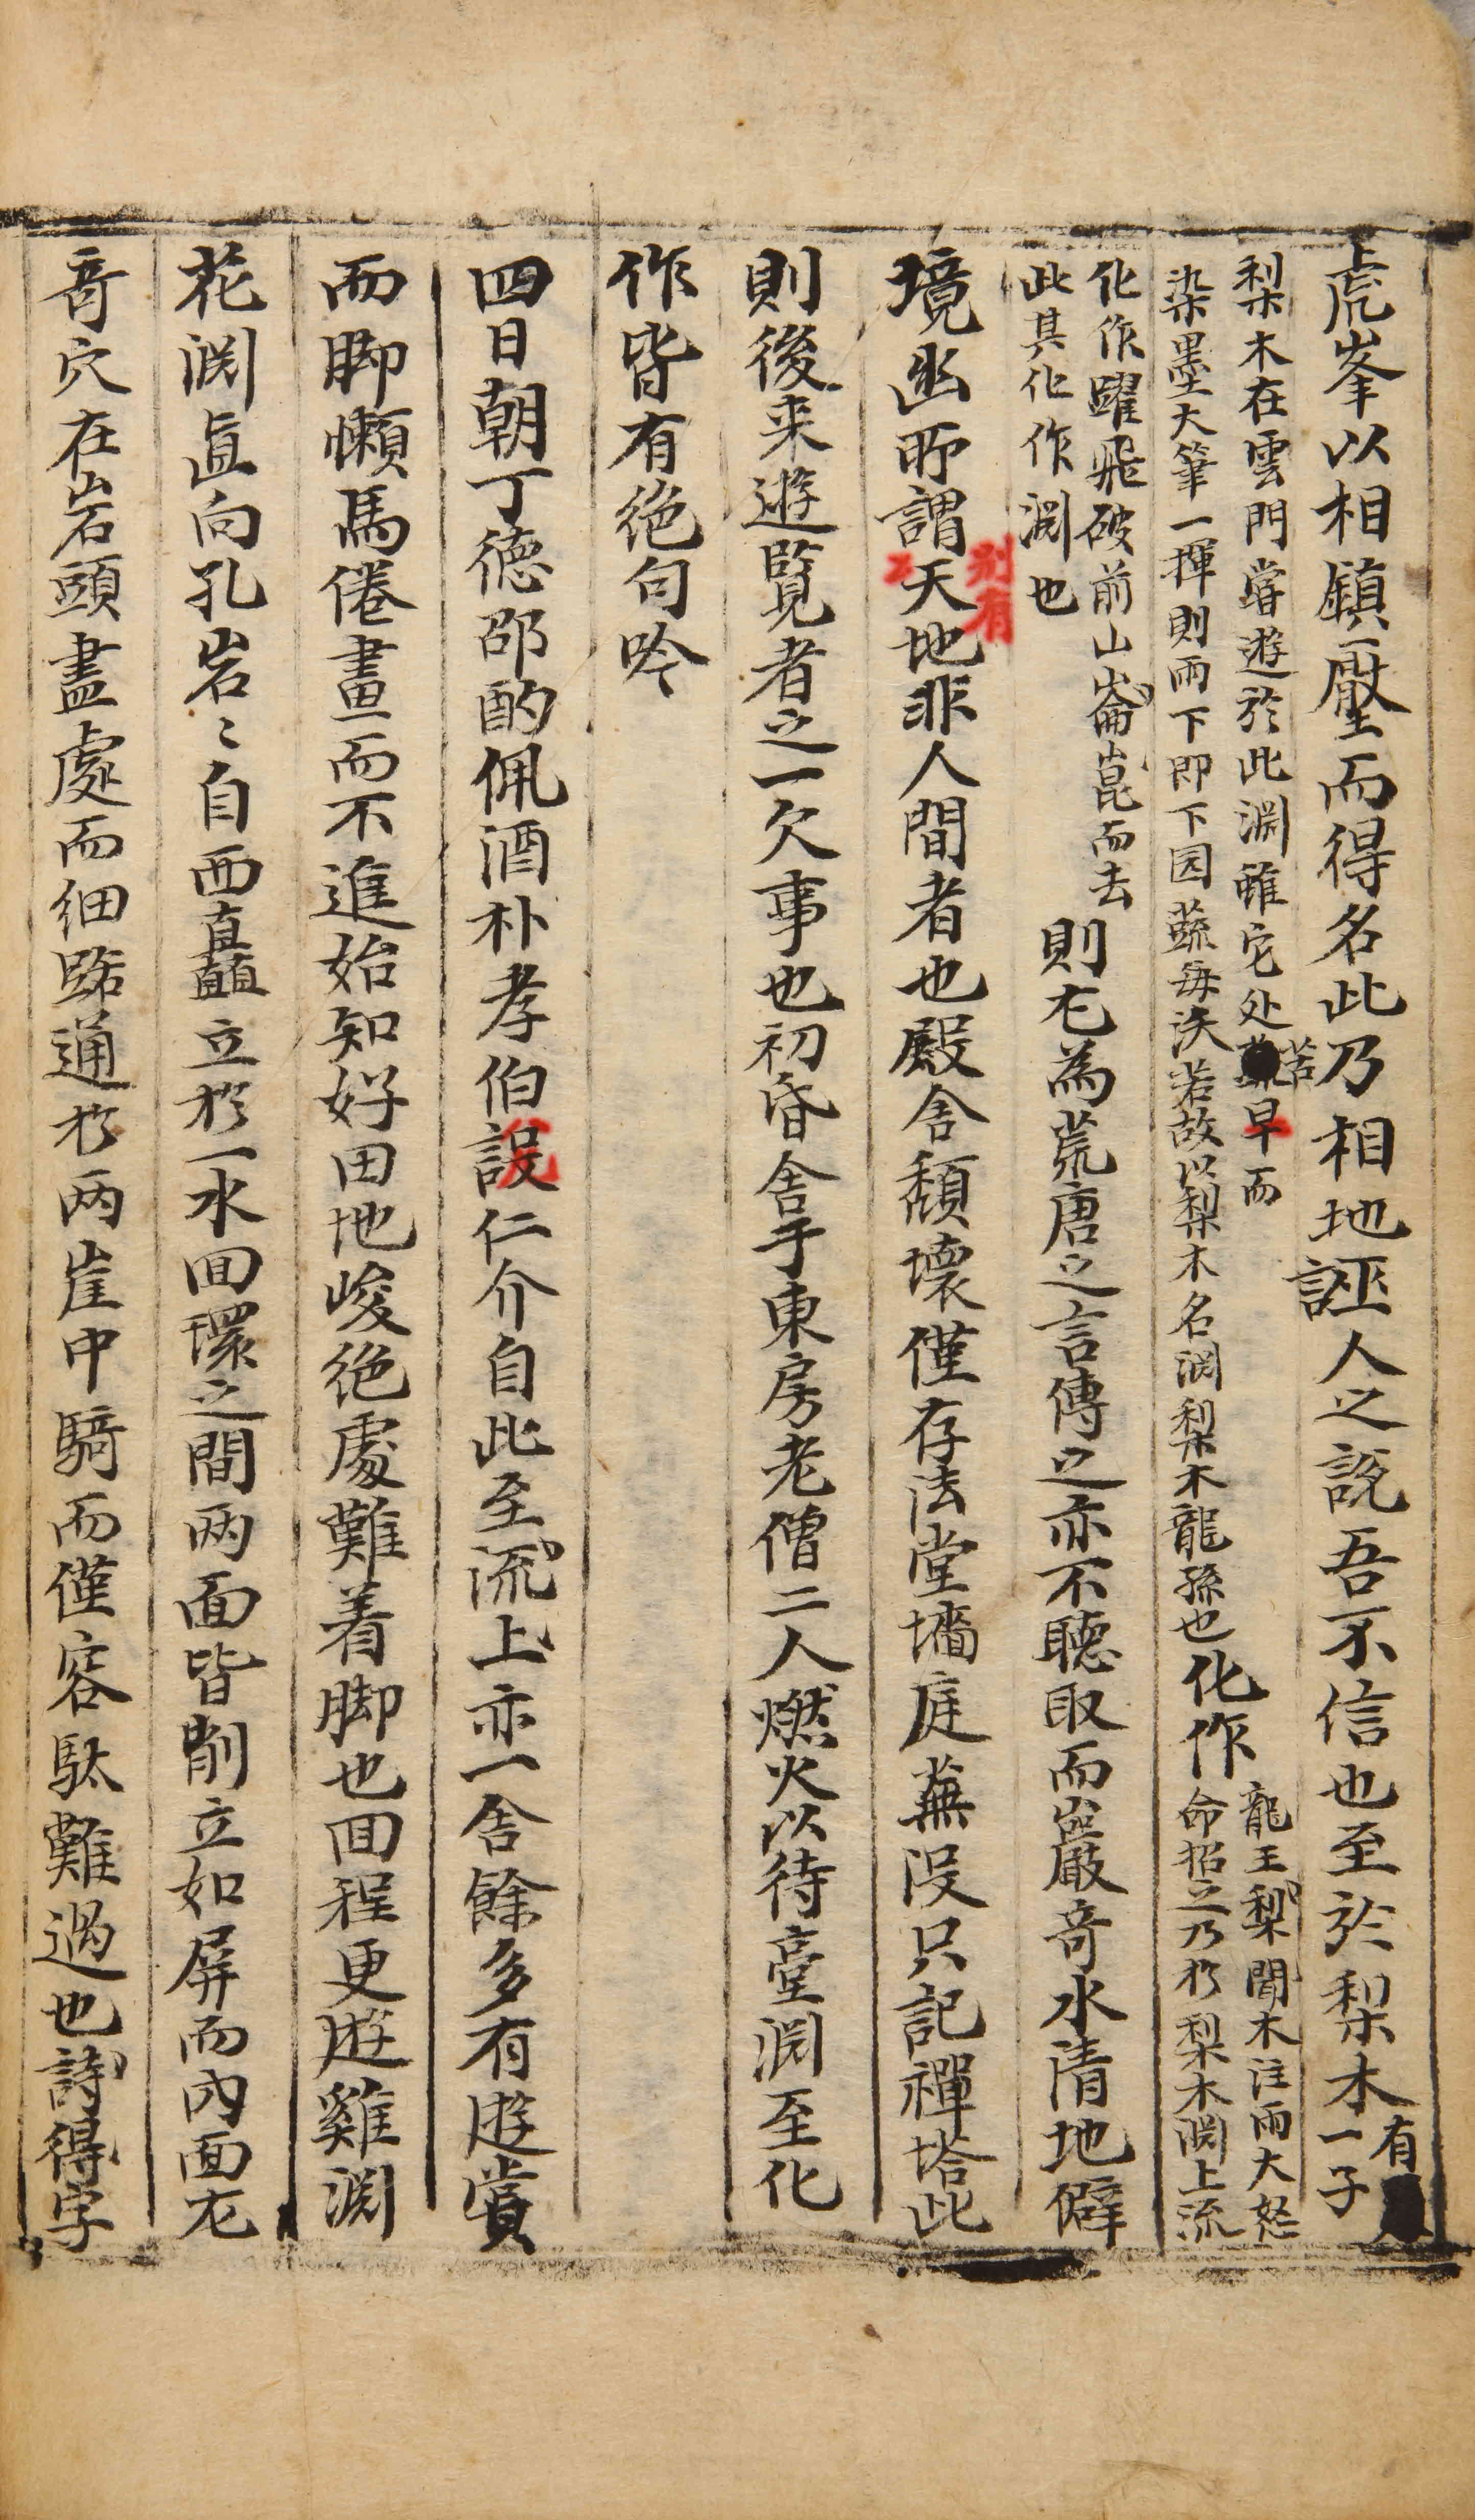 虎峯以相鎭壓而得名此乃相地誣人之說吾不信也至於梨木有一子
梨木在雲門嘗遊於此淵雖宅处苦旱而
染墨大筆一揮則雨下即下园蔬每决若故以梨木名淵梨木龍孫也
化作
龍王梨聞木注雨大怒
命招之乃於梨木淵上流
化作躍飛破前山崙崑而去
此其化作淵也
則尤為荒唐之言傳之亦不聽取而岩嚴奇水淸地僻
境幽所謂別有天地非人間者也殿舍頹壞僅存法堂墻庭蕪沒只記禪塔此
則後来遊覽者之一欠事也初昏舍于東房老僧二人燃火以待臺淵至化
作皆有絶句吟
四日朝丁德邵酌佩酒朴孝伯設仁介自此至流上亦一舍餘多有遊賞
而脚懶馬倦畫而不進始知好田地峻絶處難着脚也回程更遊雞淵
花淵直向孔岩〻自西直矗立於一水回環之間兩面皆削立如屏而內面尤
奇穴在岩頭盡處而細路通於兩崖中騎而僅容駄難過也詩得字